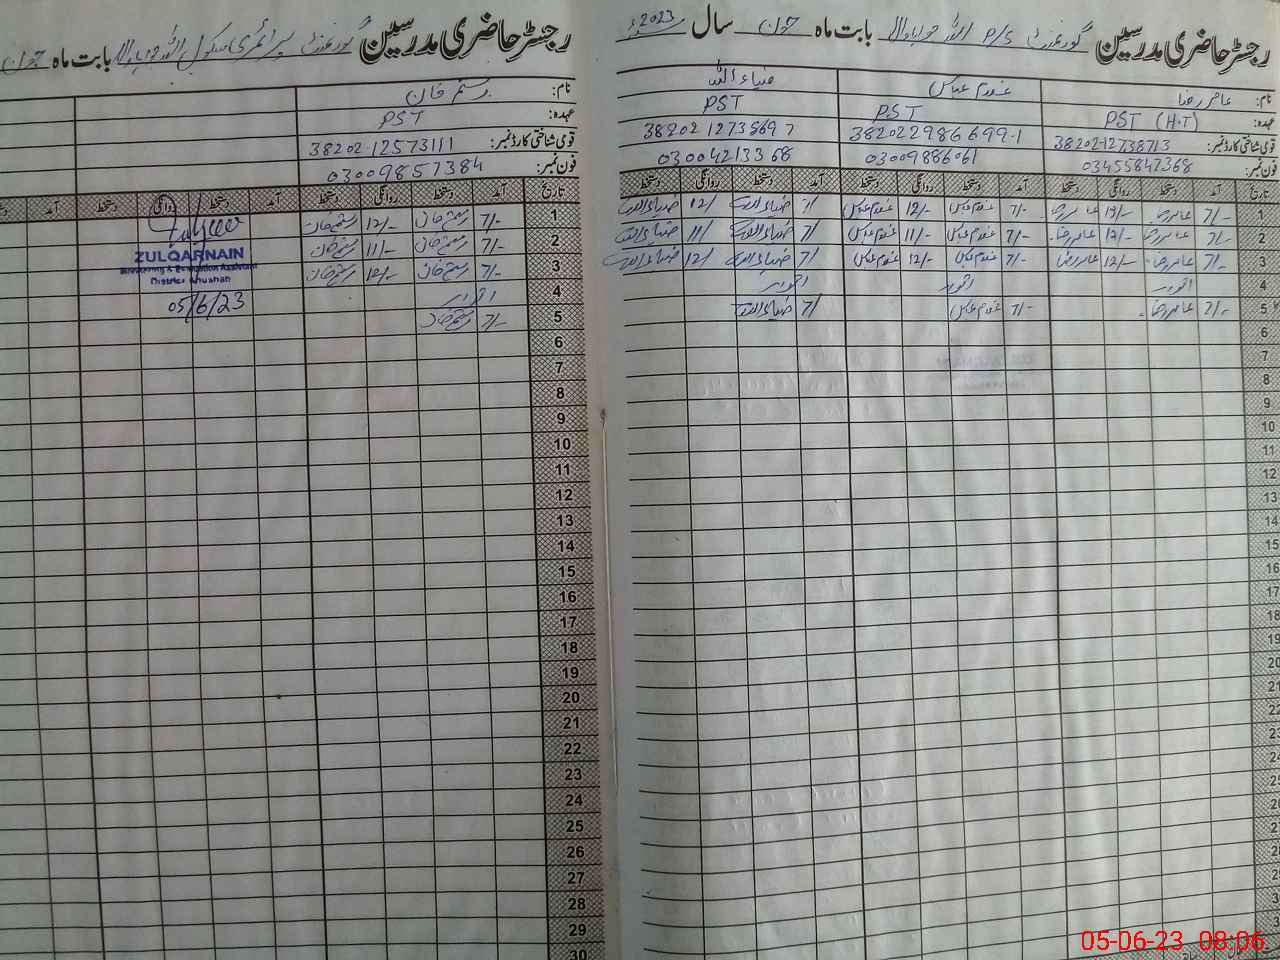 رجسٹر حاضری مدرسین گورنمنٹ P/S بابت ماہ جون سال 2023
نام: عامر رضا غلام عباس ضیاء اللہ
عہدہ: PST (H.T) PST PST
قومی شناختی کارڈ نمبر: 38202-12738713
فون نمبر: 03455847368 03009886061 03004213368
تاریخ آمد دستخط روانگی دستخط آمد دستخط روانگی دستخط آمد دستخط روانگی دستخط
1 7/- عامر رضا 12/- عامر رضا 7/- غلام عباس 12/- غلام عباس 7/ ضیاء اللہ 12/ ضیاء اللہ
2 7/- عامر رضا 12/- عامر رضا 7/- غلام عباس 11/- غلام عباس 7/ ضیاء اللہ 11/ ضیاء اللہ
3 7/- عامر رضا 12/- عامر رضا 7/- غلام عباس 12/- غلام عباس 7/ ضیاء اللہ 12/ ضیاء اللہ
4 اتوار اتوار اتوار
5 7/- عامر رضا 7/- غلام عباس 7/ ضیاء اللہ
6
7
8
9
10
11
12
13
14
15
16
17
18
19
20
رجسٹر حاضری مدرسین گورنمنٹ پرائمری سکول بابت ماہ جون
نام: رستم خان
عہدہ: PST
قومی شناختی کارڈ نمبر: 38202-12573111
فون نمبر: 03009857384
تاریخ آمد دستخط روانگی دستخط آمد دستخط روانگی دستخط آمد
1 7/- رستم خان 12/- رستم خان
2 7/- رستم خان 11/- رستم خان
3 7/- رستم خان 12/- رستم خان
4 اتوار
5 7/- رستم خان
ZULQARNAIN
Monitoring & Evaluation Assistant
District Khushab
05/6/23
6
7
8
9
10
11
12
13
14
15
16
17
18
19
20
21
22
23
24
25
26
27
28
29
30
05-06-23 08:06